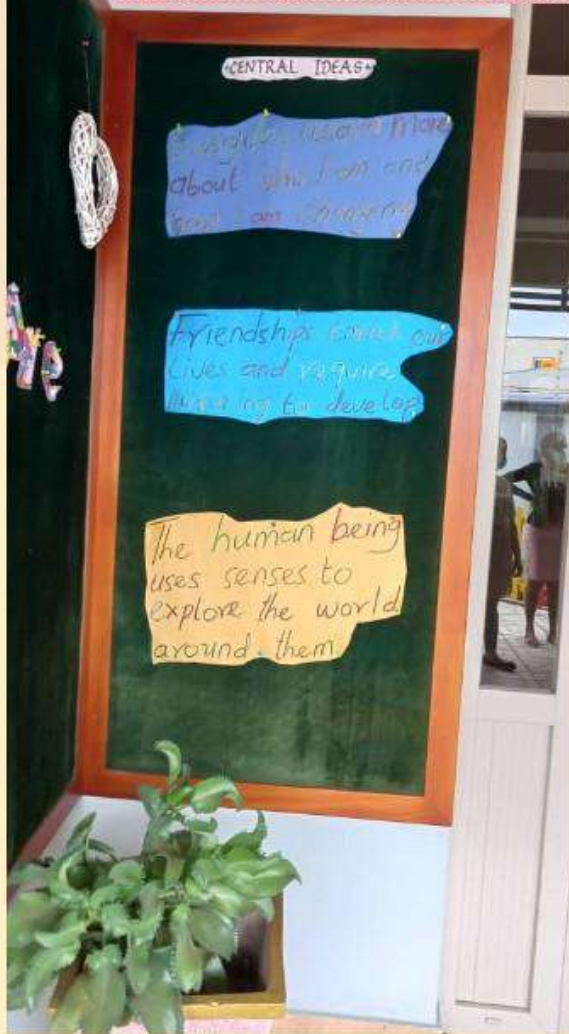 CENTRAL IDEAS
Everyday I learn more
about who I am and
how I am changing
Friendships enrich our
Lives and require
to develop
The human being
uses senses to
explore the world
around them